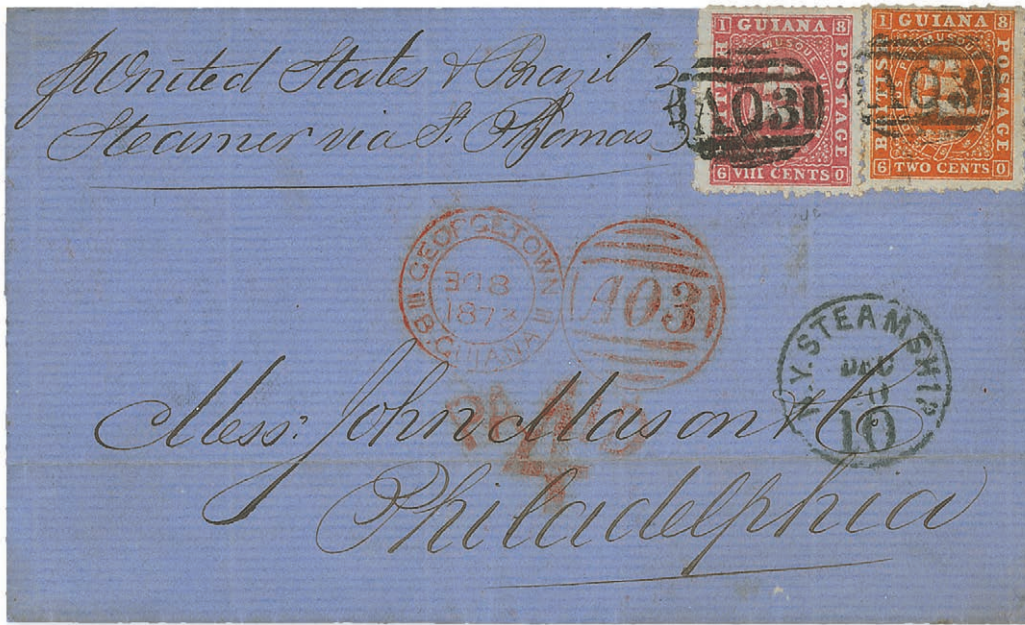 p United States & Brazil
Steamer via St. Thomas
1 GUIANA 8
BRITISH
POSTAGE
6 VIII CENTS 0
A03
1 GUIANA 8
BRITISH
POSTAGE
6 TWO CENTS 0
A03
GEORGETOWN
1873
B. GUIANA
A03
N.Y. STEAMSHIP
DEC
10
PAID
4
Mess: John Mason & Co
Philadelphia